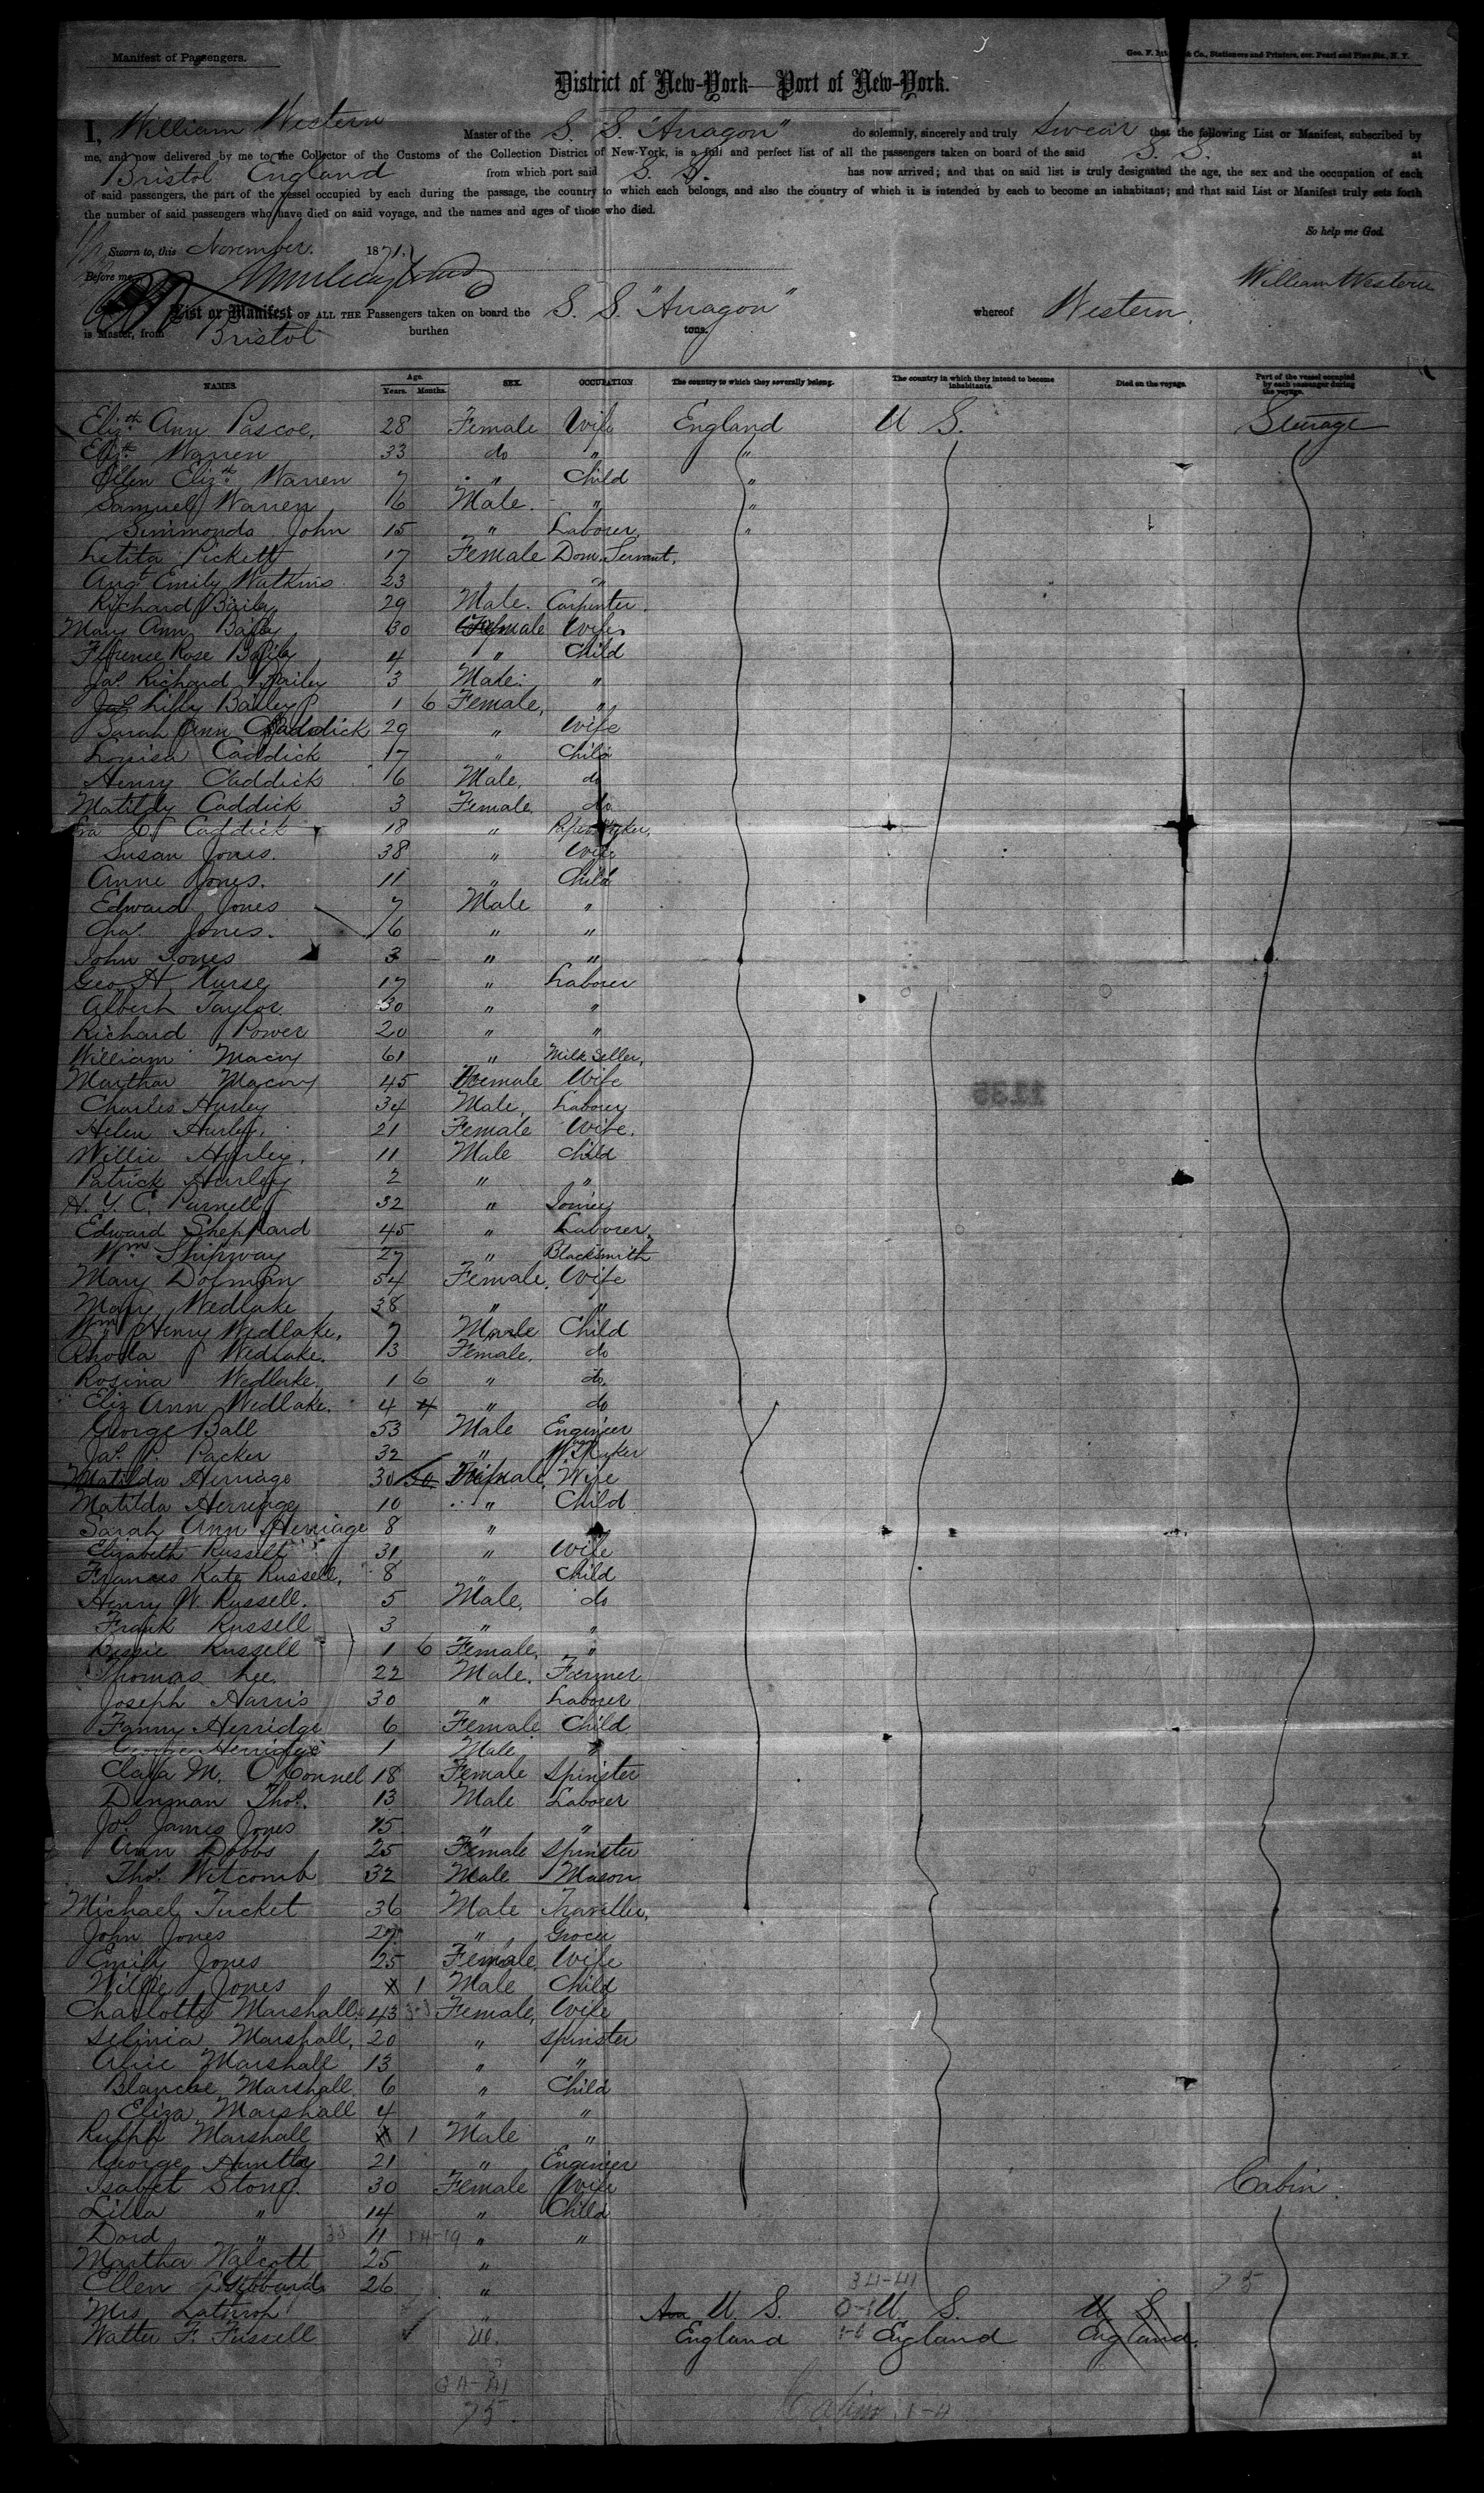 Manifest of Passengers.
Geo. F. & Co., Stationers and Printers, cor. Pearl and Pine Sts., N. Y.
District of New-York—Port of New-York.
I, William Western Master of the S. S. "Arragon" do solemnly, sincerely and truly swear that the following List or Manifest, subscribed by
me, and now delivered by me to the Collector of the Customs of the Collection District of New-York, is a full and perfect list of all the passengers taken on board of the said S. S. at
Bristol England from which port said S. S. has now arrived; and that on said list is truly designated the age, the sex and the occupation of each
of said passengers, the part of the vessel occupied by each during the passage, the country to which each belongs, and also the country of which it is intended by each to become an inhabitant; and that said List or Manifest truly sets forth
the number of said passengers who have died on said voyage, and the names and ages of those who died.
So help me God.
Sworn to, this November. 1871.
Before me,
William Western
List or Manifest OF ALL THE Passengers taken on board the S. S. "Arragon" whereof Western.
is Master, from Bristol burthen tons.
NAMES. Age. Years. Months. SEX. OCCUPATION The country to which they severally belong. The country in which they intend to become inhabitants. Died on the voyage. Part of the vessel occupied by each passenger during the voyage.
Elizth Ann Pascoe, 28 Female Wife England U S. Steerage
Elizth Warren 33 do " "
Ellen Elizth Warren 7 " Child "
Samuel Warren 6 Male. " "
Simmonds John 15 " Laborer "
Letita Pickett 17 Female Dom. Servant.
Augt Emily Watkins 23 " "
Richard Baily 29 Male. Carpenter.
Mary Ann Baily 30 Female Wife
Florence Rose Baily 4 " Child
Jas. Richard Bailey 3 Male. "
Lilly Bailey 1 6 Female, "
Sarah Ann Caddick 29 " Wife
Louisa Caddick 17 " Child
Henry Caddick 6 Male, do
Matildy Caddick 3 Female. do
Caddick 18 "
Susan Jones. 38 " Wife
Anne Jones. 11 " Child
Edward Jones 7 Male "
Chas. Jones. 6 " "
John Jones 3 " "
Geo H. Nurse 17 " Laborer
Albert Taylor. 30 " "
Richard Power 20 " "
William Macny 61 " Milk Seller,
Martha Macny 45 Female Wife
Charles Hurley 34 Male, Laborer
Helen Hurley. 21 Female Wife.
Willie Hurley. 11 Male Child
Patrick Hurley 2 " "
H. Y. C. Purnell 32 "
Edward Sheppard 45 " Laborer.
Wm. Shipway 27 " Blacksmith
Mary Dorman 54 Female, Wife
Mary Wedlake 38 " "
Wm. Henry Wedlake, 7 Male Child
Rhoda Wedlake. 3 Female. do
Rosina Wedlake. 1 6 " do.
Eliz Ann Wedlake. 4 " do
George Ball 53 Male Engineer
Jas. P. Packer 32 "
Matilda Herriage 30 Female, Wife
Matilda Herriage 10 " Child
Sarah Ann Herriage 8 "
Elizabeth Russell 31 " Wife
Frances Kate Russell, 8 " Child
Henry W. Russell. 5 Male, do
Frank Russell 3 " "
Bessie Russell 1 6 Female, "
Thomas Lee. 22 Male. Farmer
Joseph Harris 30 " Laborer
Fanny Herridge 6 Female Child
George Herridge 1 Male "
Clara M. O'Connel 18 Female Spinster
Denman Thos. 13 Male Laborer
Jos. James Jones 15 " "
Ann Dobbs 25 Female Spinster
Thos. Witcomb 32 Male Mason
Michael Tucket 36 Male Traviller,
John Jones 27 " Grocer
Emily Jones 25 Female. Wife
Willie Jones 1 Male Child
Charlotte Marshall. 43 Female, Wife
Selinia Marshall, 20 " Spinster
Alice Marshall 13 " "
Blanche Marshall. 6 " Child
Eliza Marshall 4 " "
Ralph Marshall 1 Male "
George Huntly 21 " Engineer
Isabel Stone. 30 Female Wife Cabin.
Lilla " 14 " Child
Dord " 11 " "
Martha Walcott 25 "
Ellen Gibbard 26 "
Mrs. Lathrop " U. S. U. S. U. S.
Walter F. Fussell M. England England England.
75
Cabin 1-4
1135